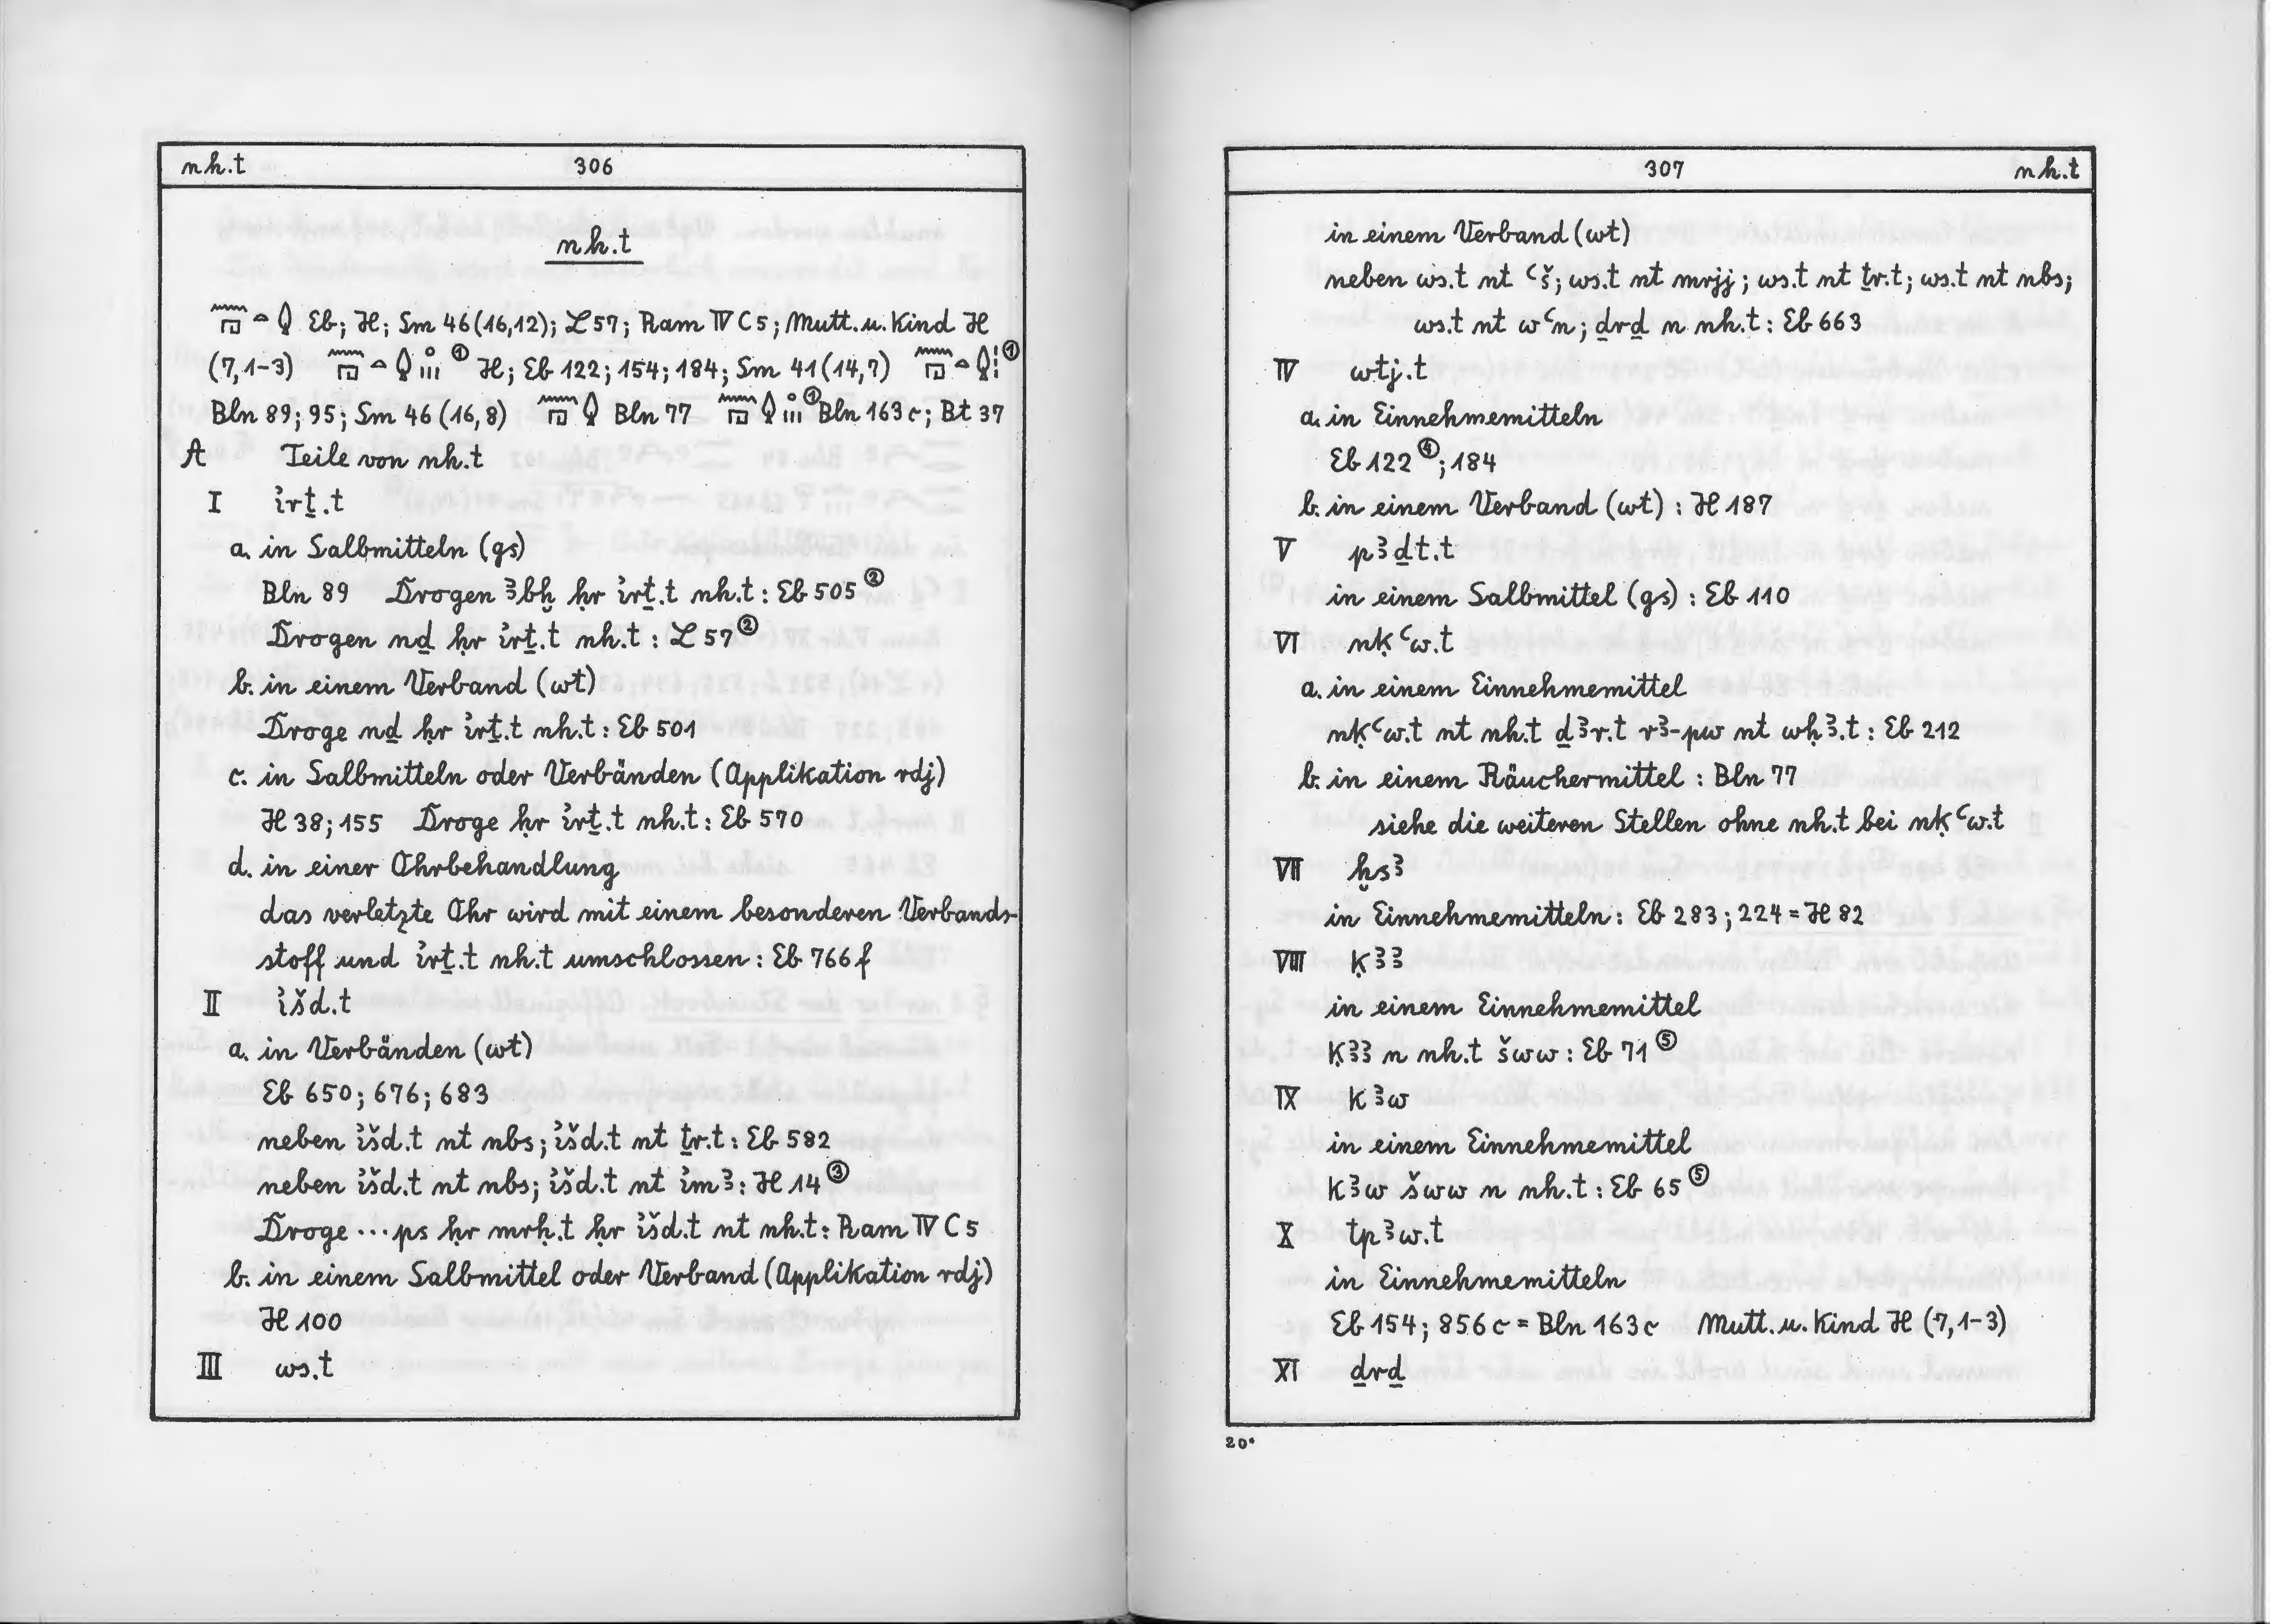 nh.t 306
nh.t
𓈖𓉔𓏏𓆭 Eb; H; Sm 46 (16,12); L 57; Ram IV C 5; Mutt. u. Kind H
(7,1-3) ① H; Eb 122; 154; 184; Sm 41 (14,7) ①
Bln 89; 95; Sm 46 (16,8) Bln 77 ① Bln 163 c; Bt 37
A Teile von nh.t
I i͗rṯ.t
a. in Salbmitteln (gs)
Bln 89 Drogen ꜣbḫ ḥr i͗rṯ.t nh.t : Eb 505 ②
Drogen nḏ ḥr i͗rṯ.t nh.t : L 57 ②
b. in einem Verband (wt)
Droge nḏ ḥr i͗rṯ.t nh.t : Eb 501
c. in Salbmitteln oder Verbänden (Applikation rdj)
H 38; 155 Droge ḥr i͗rṯ.t nh.t : Eb 570
d. in einer Ohrbehandlung
das verletzte Ohr wird mit einem besonderen Verbands-
stoff und i͗rṯ.t nh.t umschlossen : Eb 766 f
II i͗šd.t
a. in Verbänden (wt)
Eb 650; 676; 683
neben i͗šd.t nt nbs; i͗šd.t nt ṯr.t : Eb 582
neben i͗šd.t nt nbs; i͗šd.t nt i͗mꜣ : H 14 ③
Droge ... ps ḥr mrḥ.t ḥr i͗šd.t nt nh.t : Ram IV C 5
b. in einem Salbmittel oder Verband (Applikation rdj)
H 100
III ws.t
307 nh.t
in einem Verband (wt)
neben ws.t nt ꜥš; ws.t nt mrjj; ws.t nt ṯr.t; ws.t nt nbs;
ws.t nt wꜥn; ḏrḏ n nh.t : Eb 663
IV wtj.t
a. in Einnehmemitteln
Eb 122 ④; 184
b. in einem Verband (wt) : H 187
V pꜣḏt.t
in einem Salbmittel (gs) : Eb 110
VI nḳꜥw.t
a. in einem Einnehmemittel
nḳꜥw.t nt nh.t ḏꜣr.t rꜣ-pw nt wḥꜣ.t : Eb 212
b. in einem Räuchermittel : Bln 77
siehe die weiteren Stellen ohne nh.t bei nḳꜥw.t
VII ḫsꜣ
in Einnehmemitteln : Eb 283; 224 = H 82
VIII ḳꜣꜣ
in einem Einnehmemittel
ḳꜣꜣ n nh.t šww : Eb 71 ⑤
IX kꜣw
in einem Einnehmemittel
kꜣw šww n nh.t : Eb 65 ⑤
X tpꜣw.t
in Einnehmemitteln
Eb 154; 856 c = Bln 163 c Mutt. u. Kind H (7,1-3)
XI ḏrḏ
20*